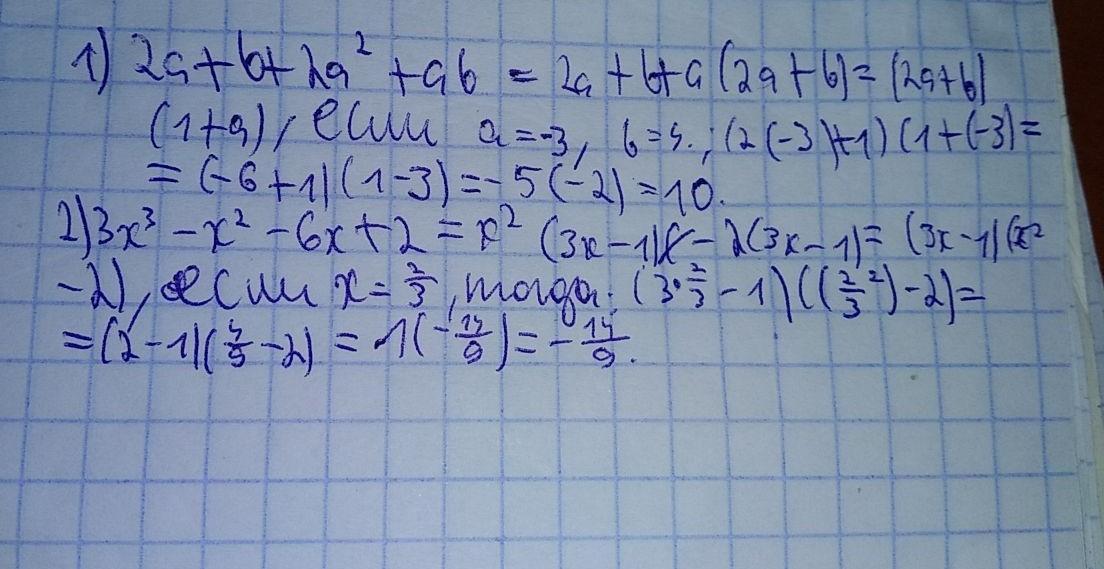 1) 2a+b+2a² +ab = 2a+b+a(2a+b)=(2a+b)
(1+a), если a=-3, b=4.; (2(-3)+1)(1+(-3)=
=(-6+1)(1-3)=-5(-2)=10.
2) 3x³-x²-6x+2=x²(3x-1)-2(3x-1)=(3x-1)(x²
-2), если x=2/3, тогда: (3·2/3-1)((2/3²)-2)=
=(2-1)(4/9-2)=1(-14/9)=-14/9.